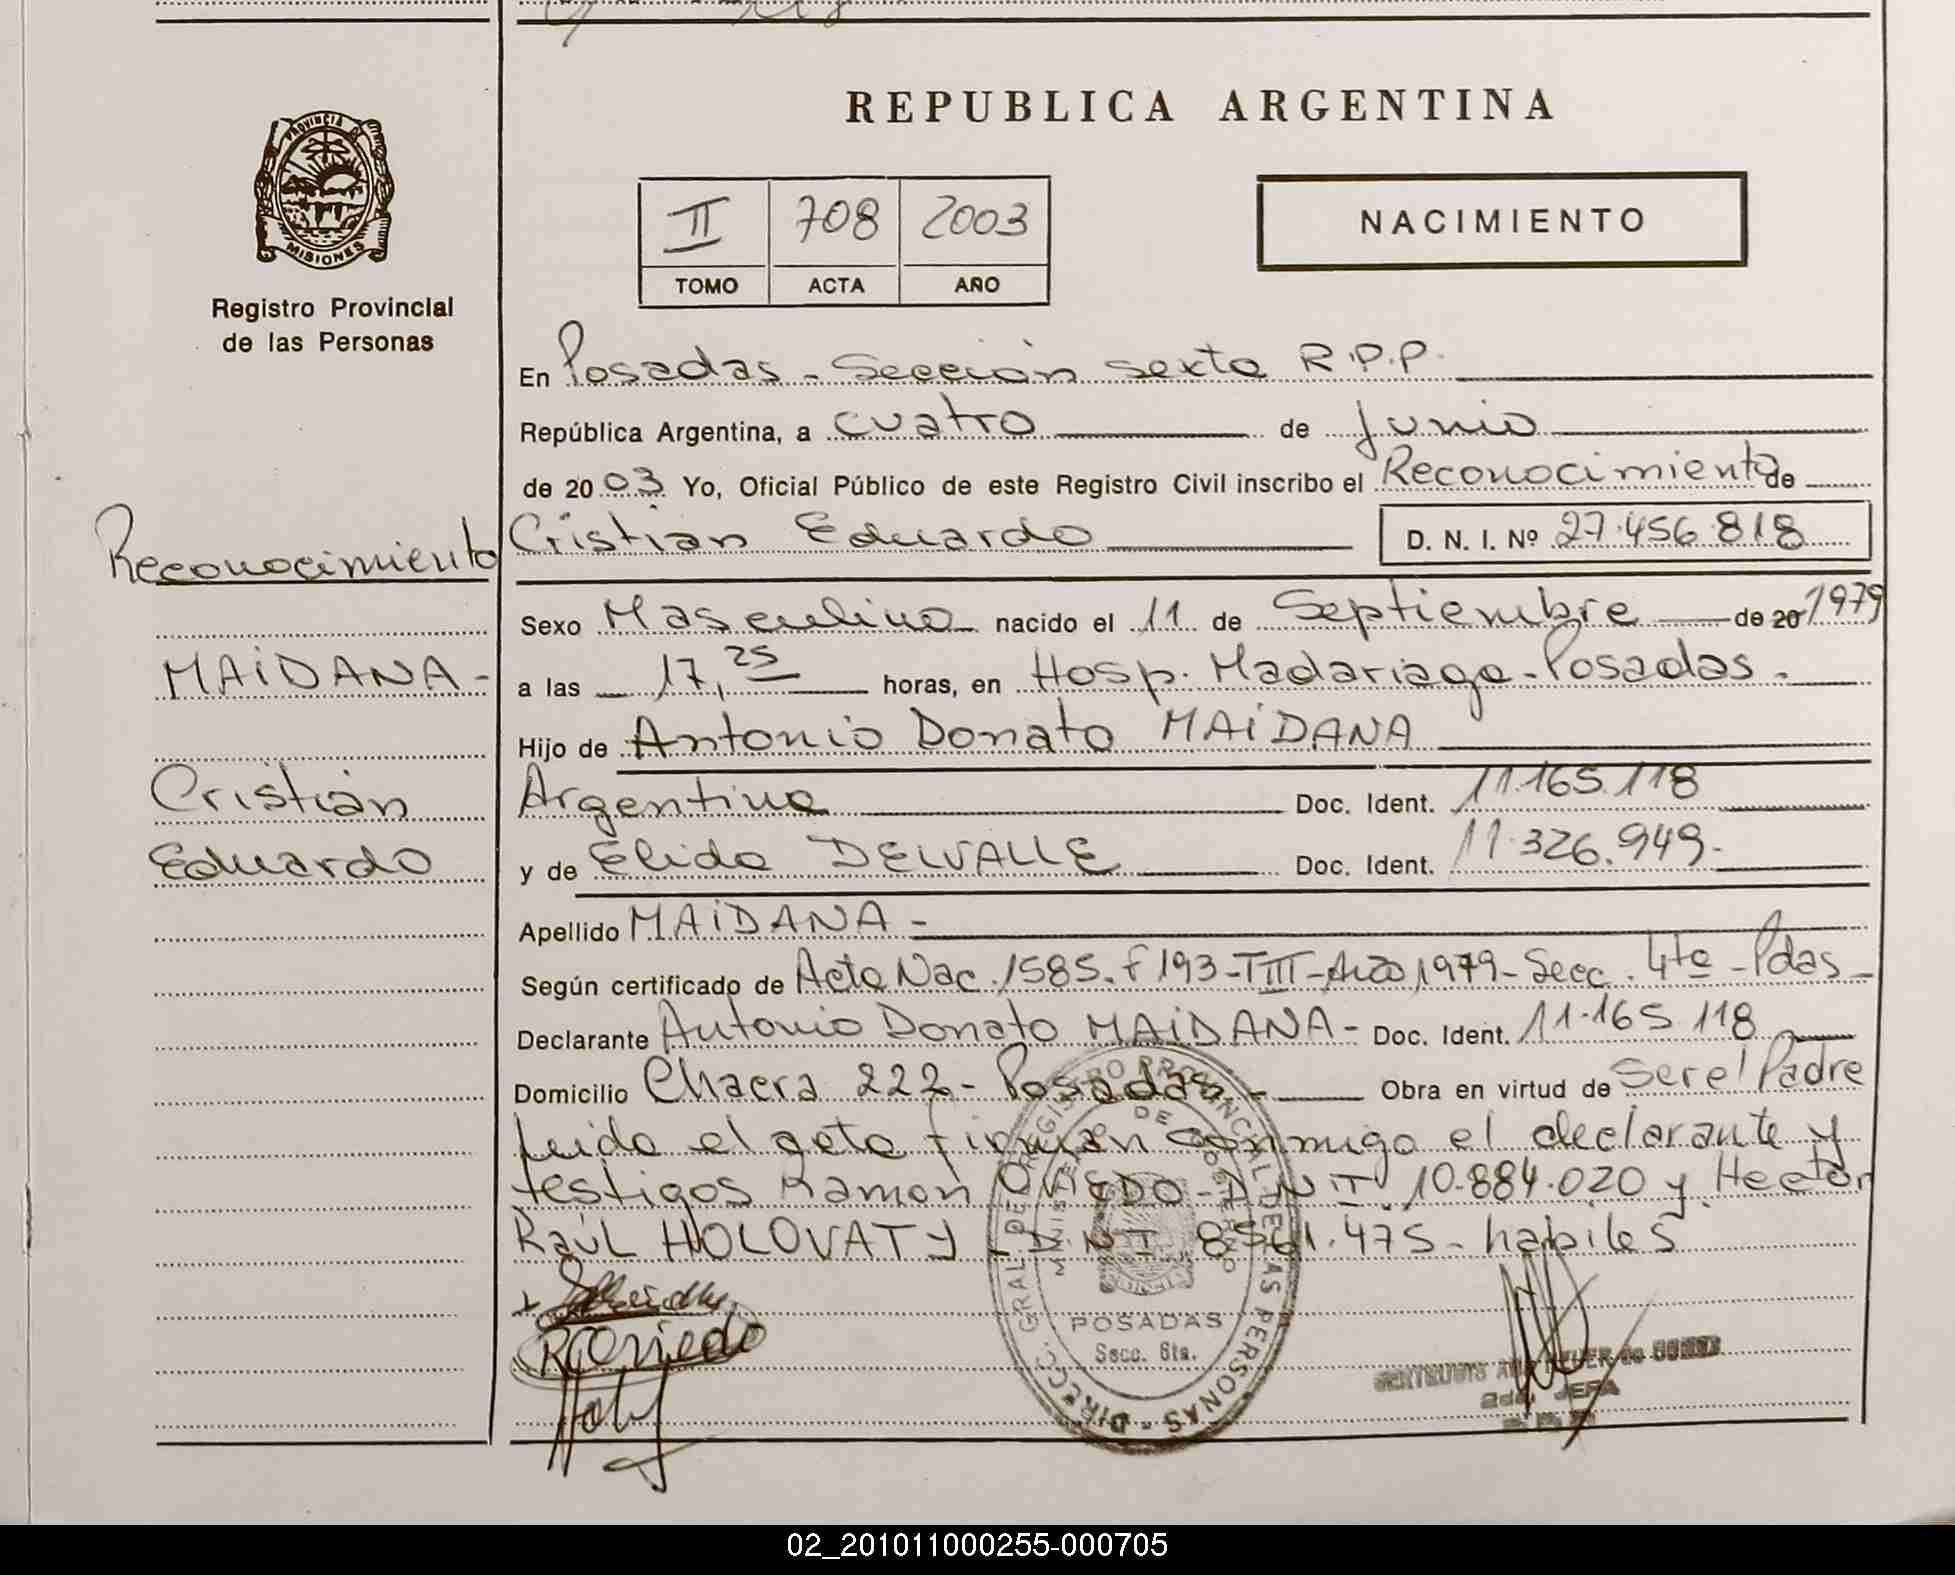 REPUBLICA ARGENTINA
PROVINCIA DE
MISIONES
Registro Provincial
de las Personas
II 708 2003
TOMO ACTA AÑO
NACIMIENTO
En Posadas - Sección sexta R.P.P.
República Argentina, a cuatro de Junio
de 20 03 Yo, Oficial Público de este Registro Civil inscribo el Reconocimiento de
Reconocimiento
Cristian Eduardo D. N. I. Nº 27.456.818
Sexo Masculino nacido el 11 de Septiembre de 20 1979
MAIDANA -
a las 17,25 horas, en Hosp. Madariaga - Posadas -
Hijo de Antonio Donato MAIDANA
Cristian
Eduardo
Argentina Doc. Ident. 11.165.118
y de Elida DELVALLE Doc. Ident. 11.326.949.-
Apellido MAIDANA -
Según certificado de Acta Nac. 1585. f 193 - T III - Año 1979 - Secc. 4ta - Pdas -
Declarante Antonio Donato MAIDANA - Doc. Ident. 11.165.118
Domicilio Chacra 222 - Posadas - Obra en virtud de Ser el Padre
Leida el acta firman conmigo el declarante y
testigos Ramon OVIEDO - D.N.I. 10.884.020 y Hector
Raúl HOLOVATY - D.N.I. 8.561.475 - habiles
DIRECC. GRAL. DEL REGISTRO PROVINCIAL DE LAS PERSONAS
MINISTERIO DE GOBIERNO
POSADAS
Secc. 6ta.
2da. JEFA
02_201011000255-000705